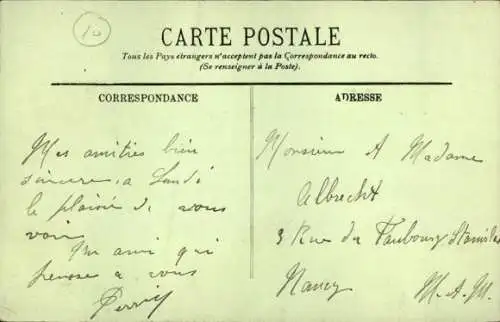 10
CARTE POSTALE
Tous les Pays étrangers n'acceptent pas la Correspondance au recto.
(Se renseigner à la Poste).
CORRESPONDANCE
Mes amitiés bien
sincères, a Lundi
le plaisir de vous
voir
Un ami qui
pense a vous
ADRESSE
Monsieur & Madame
Albrecht
3 Rue du Faubourg Stanislas
Nancy
M. & M.